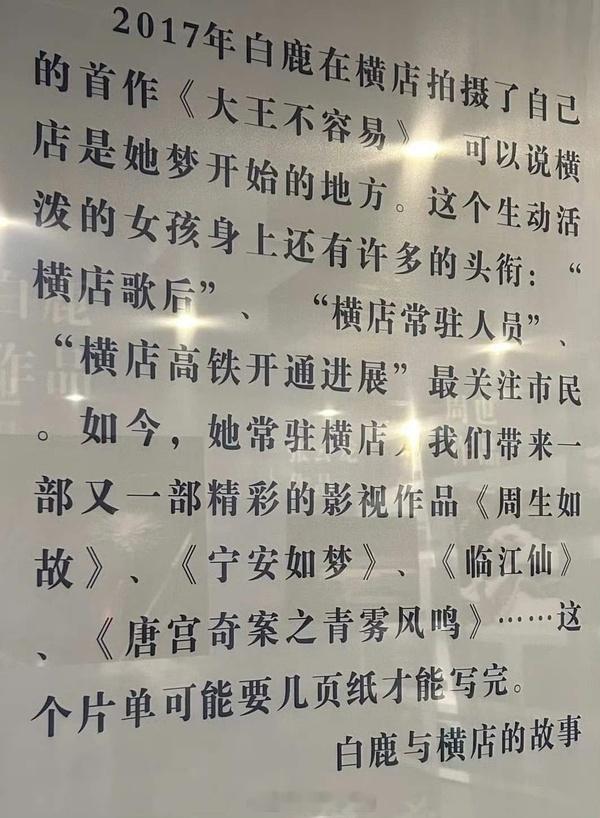 2017年白鹿在横店拍摄了自己
的首作《大王不容易》，可以说横
店是她梦开始的地方。这个生动活
泼的女孩身上还有许多的头衔：“
横店歌后”、“横店常驻人员”、
“横店高铁开通进展”最关注市民
。如今，她常驻横店 我们带来一
部又一部精彩的影视作品《周生如
故》、《宁安如梦》、《临江仙》
、《唐宫奇案之青雾风鸣》……这
个片单可能要几页纸才能写完。
白鹿与横店的故事